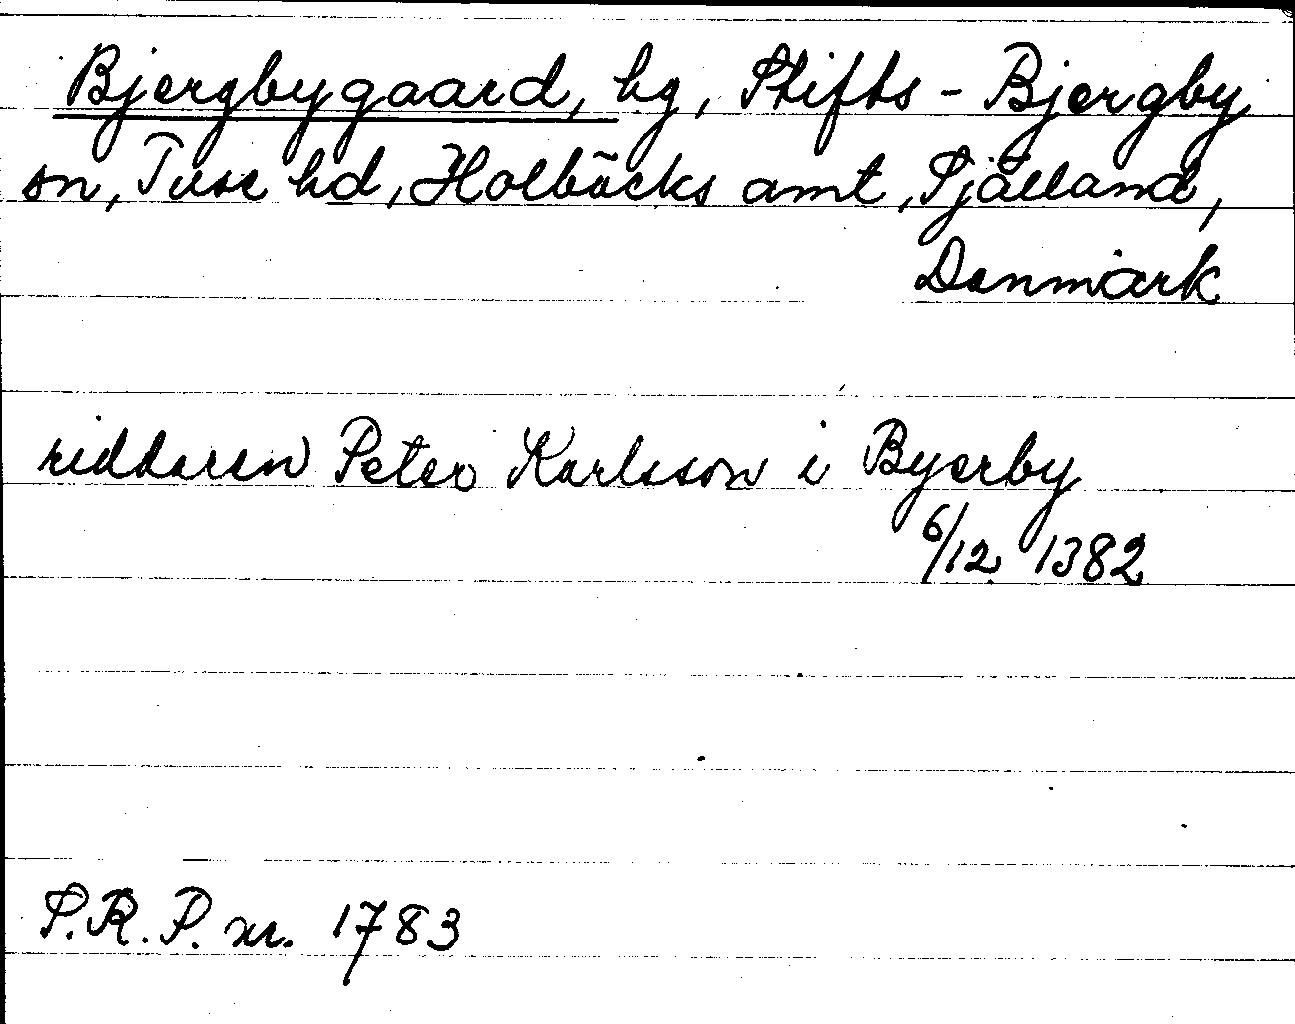 Bjergbygaard, hg, Stifts - Bjergby
sn, Tuse hd, Holbäcks amt, Själland,
Danmark
riddaren Peter Karlsson i Byerby
6/12 1382
S.R.P. nr. 1783